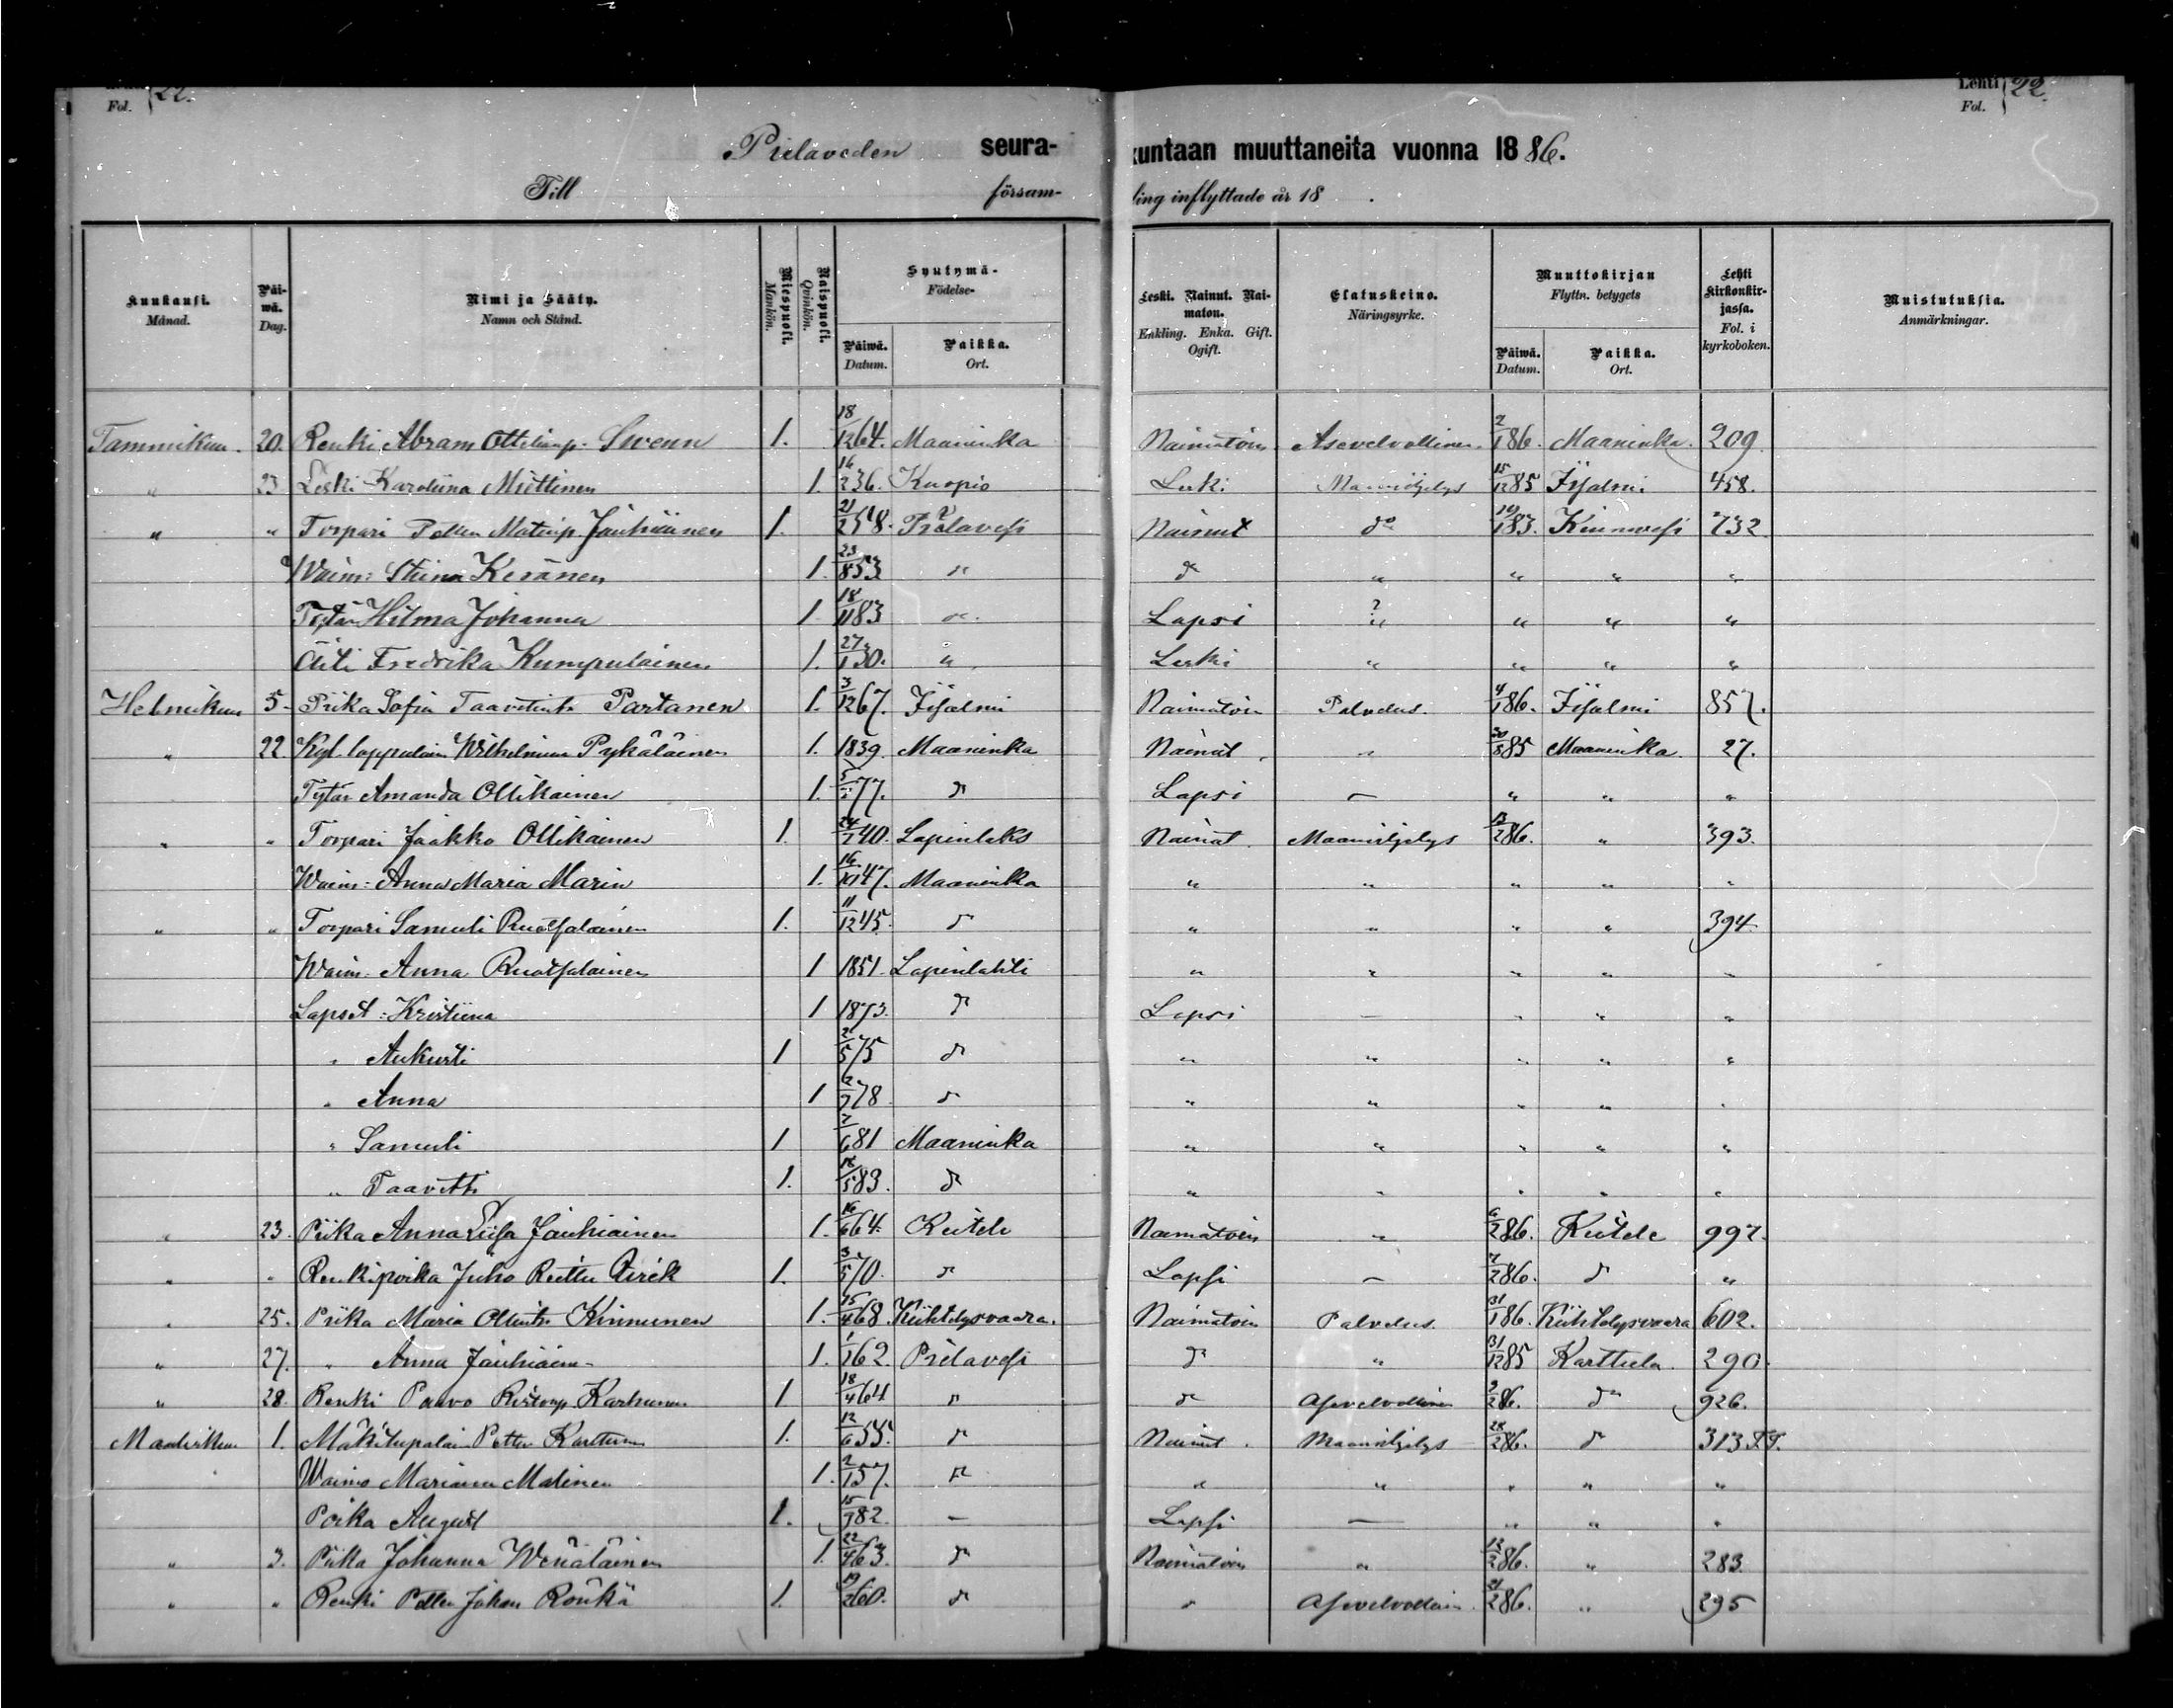 Fol. 22. Lehti 22.
Fol.
Pielaveden seura- kuntaan muuttaneita vuonna 1886.
Till försam- ling inflyttade år 18 .
Kuukausi. Månad. Päi-wä. Dag. Nimi ja Sääty. Namn och Stånd. Miespuoli. Mankön. Naispuoli. Qvinkön. Syntymä- Födelse- Päiwä. Datum. Paikka. Ort. Leski. Nainut. Nai-maton. Enkling. Enka. Gift. Ogift. Elatuskeino. Näringsyrke. Muuttokirjan Flyttn. betygets Päiwä. Datum. Paikka. Ort. Lehti Kirkonkir-jassa. Fol. i kyrkoboken. Muistutuksia. Anmärkningar.
Tammikuu. 20. Renki Abram Swenn 1. 18/12 64. Maaninka Naimatoin Asevelvollinen 2/1 86. Maaninka. 209
" 23. Leski Karoliina Miettinen 1. 16/2 36. Kuopio Leski Maanviljelys 15/12 85 Iisalmi 458.
" " Torpari Petter Matinp. Jauhiainen 1. 21/2 58. Pielavesi Nainut do 19/1 83. Kiuruvesi 732
Waim: Stina Keränen 1. 23/8 53 " d " " " "
Tytär Hilma Johanna 1 18/11 83 " Lapsi ? " " " "
Äiti Fredrika Kumpulainen 1. 27/1 30. " Leski " " " "
Helmikuu 5 Piika Sofia Taavetint. Partanen 1. 3/12 67. Iisalmi Naimatoin Palvelus. 4/1 86. Iisalmi 857.
" 22. Kyl. loppulain Wilhelmiina Pykäläinen 1. 1839. Maaninka Nainut " 20/8 85 Maaninka. 27.
Tytär Amanda Ollikainen 1. 77. d Lapsi — " " "
" " Torpari Jaakko Ollikainen 1. 24/7 40. Lapinlaks Nainut Maanviljelys 12/2 86. " 393.
Waim: Anna Maria Marin 1. 16/10 47. Maaninka " " " " "
" " Torpari Samuli Ruotsalainen 1. 11/12 45. d " " " " 394
Waim: Anna Ruotsalainen 1 1851. Lapinlahti " " " " "
Lapset: Kristiina 1 1873. d Lapsi — " " "
" Aukusti 1 2/5 75 d " " " " "
" Anna 1 2/7 78 d " " " " "
" Samuli 1 7/6 81 Maaninka " " " " "
" Taavetti 1. 18/5 83. d " " " " "
" 23. Piika Anna Liisa Jauhiainen 1. 16/6 64. Keitele Naimatoin " 6/2 86. Keitele 997.
" " Renkipoika Juho 1. 3/5 70. d Lapsi — 7/2 86. d "
" 25. Piika Maria Ollint. Kinnunen 1. 15/4 68. Kiihtelysvaara. Naimatoin Palvelus. 31/1 86. Kiihtelysvaara 602.
" 27. " Anna Jauhiain- 1. 1/1 62. Pielavesi d " 31/12 85 Karttula. 290.
" 28. Renki Paavo Ristonp. Karhunen 1 18/4 64 d d Asevelvollinen 9/2 86. d 926.
Maaliskuu 1. Mäkitupalain Petter Karttunen 1. 12/6 55. d Nainut Maanviljelys 28/2 86. d 313 T.T.
Waimo Marianna Matinen 1. 2/1 57. d " " " " "
Poika August 1. 15/9 82. — Lapsi — " " "
" 3. Piika Johanna Wenäläinen 1. 22/4 63. d Naimatoin " 12/2 86. " 283.
" " Renki Petter Johan Rönkä 1. 19/2 60. d " Asevelvollin. 21/2 86. " 295